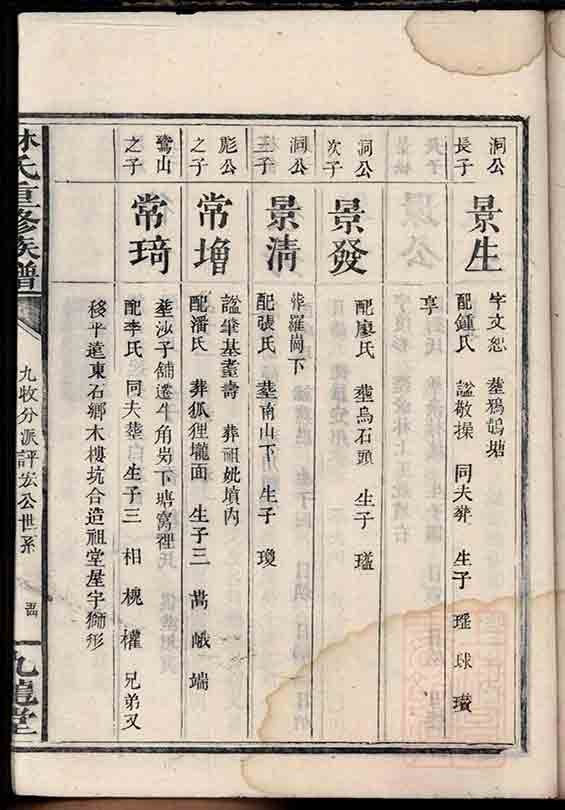 洞公長子
景生
字文恕 塟鴉鵲塘
配鍾氏 諡敬操 同夫塟 生子 瑤 球 璸
享
洞公次子
景發
配廖氏 塟烏石頭 生子 瑥
洞公三子
景清
塟羅崗下
配張氏 塟南山下 生子 瓊
彪公之子
常增
諡肇基耋壽 葬祖妣墳內
配潘氏 葬狐狸壠面 生子三 萵 峨 端
鷺山之子
常琦
塟沙子舖遷牛角岃下塘窩裡
配李氏 同夫塟 生子三 相 槐 權 兄弟又
移平遠東石鄉木樓坑合造祖堂屋宇獅形
林氏重修族譜
九牧分派評宏公世系
九龍堂